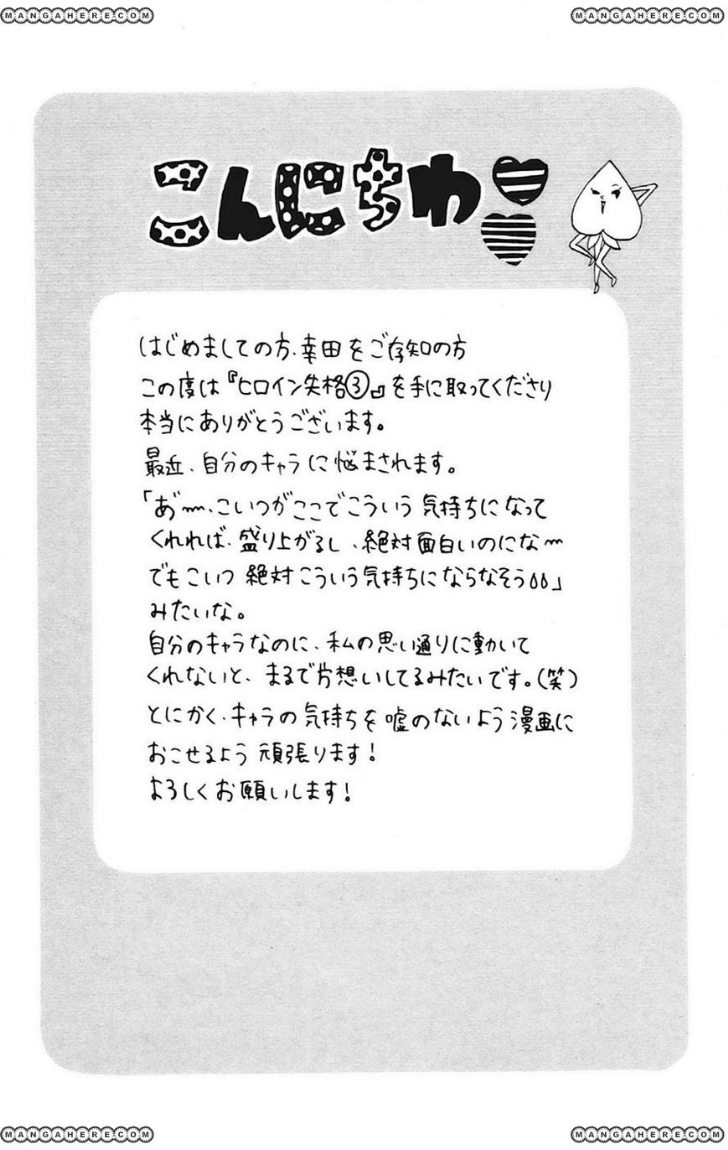 MANGAHERE.COM MANGAHERE.COM
こんにちわ
はじめましての方、幸田をご存知の方
この度は『ヒロイン失格③』を手に取ってくださり
本当にありがとうございます。
最近、自分のキャラに悩まされます。
「あ゛〜、こいつがここでこういう気持ちになって
くれれば、盛り上がるし、絶対面白いのにな〜
でもこいつ絶対こういう気持ちにならなそう」
みたいな。
自分のキャラなのに、私の思い通りに動いて
くれないと、まるで片想いしてるみたいです。(笑)
とにかく、キャラの気持ちを嘘のないよう漫画に
おこせるよう頑張ります!
よろしくお願いします!
MANGAHERE.COM MANGAHERE.COM